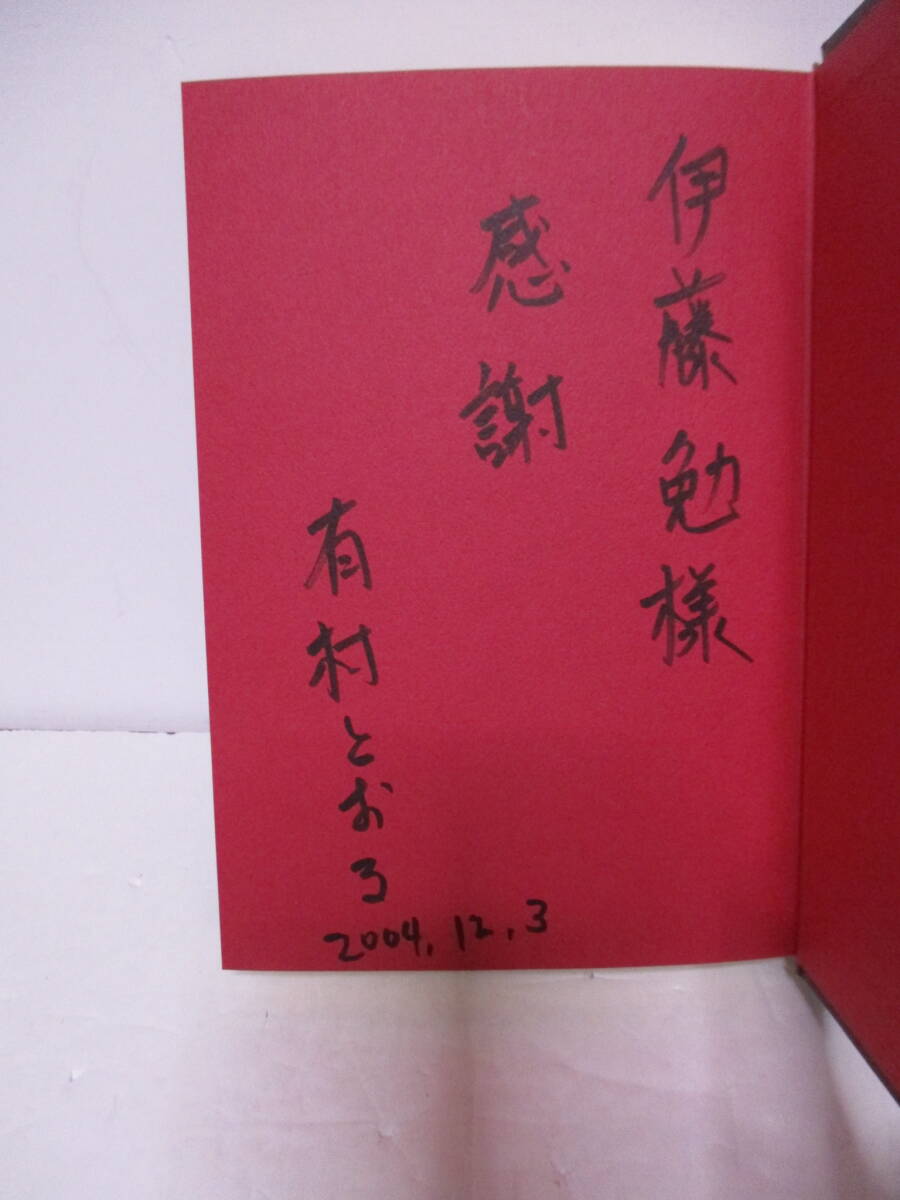 伊藤勉様
感謝
有村とおる
2004.12.3